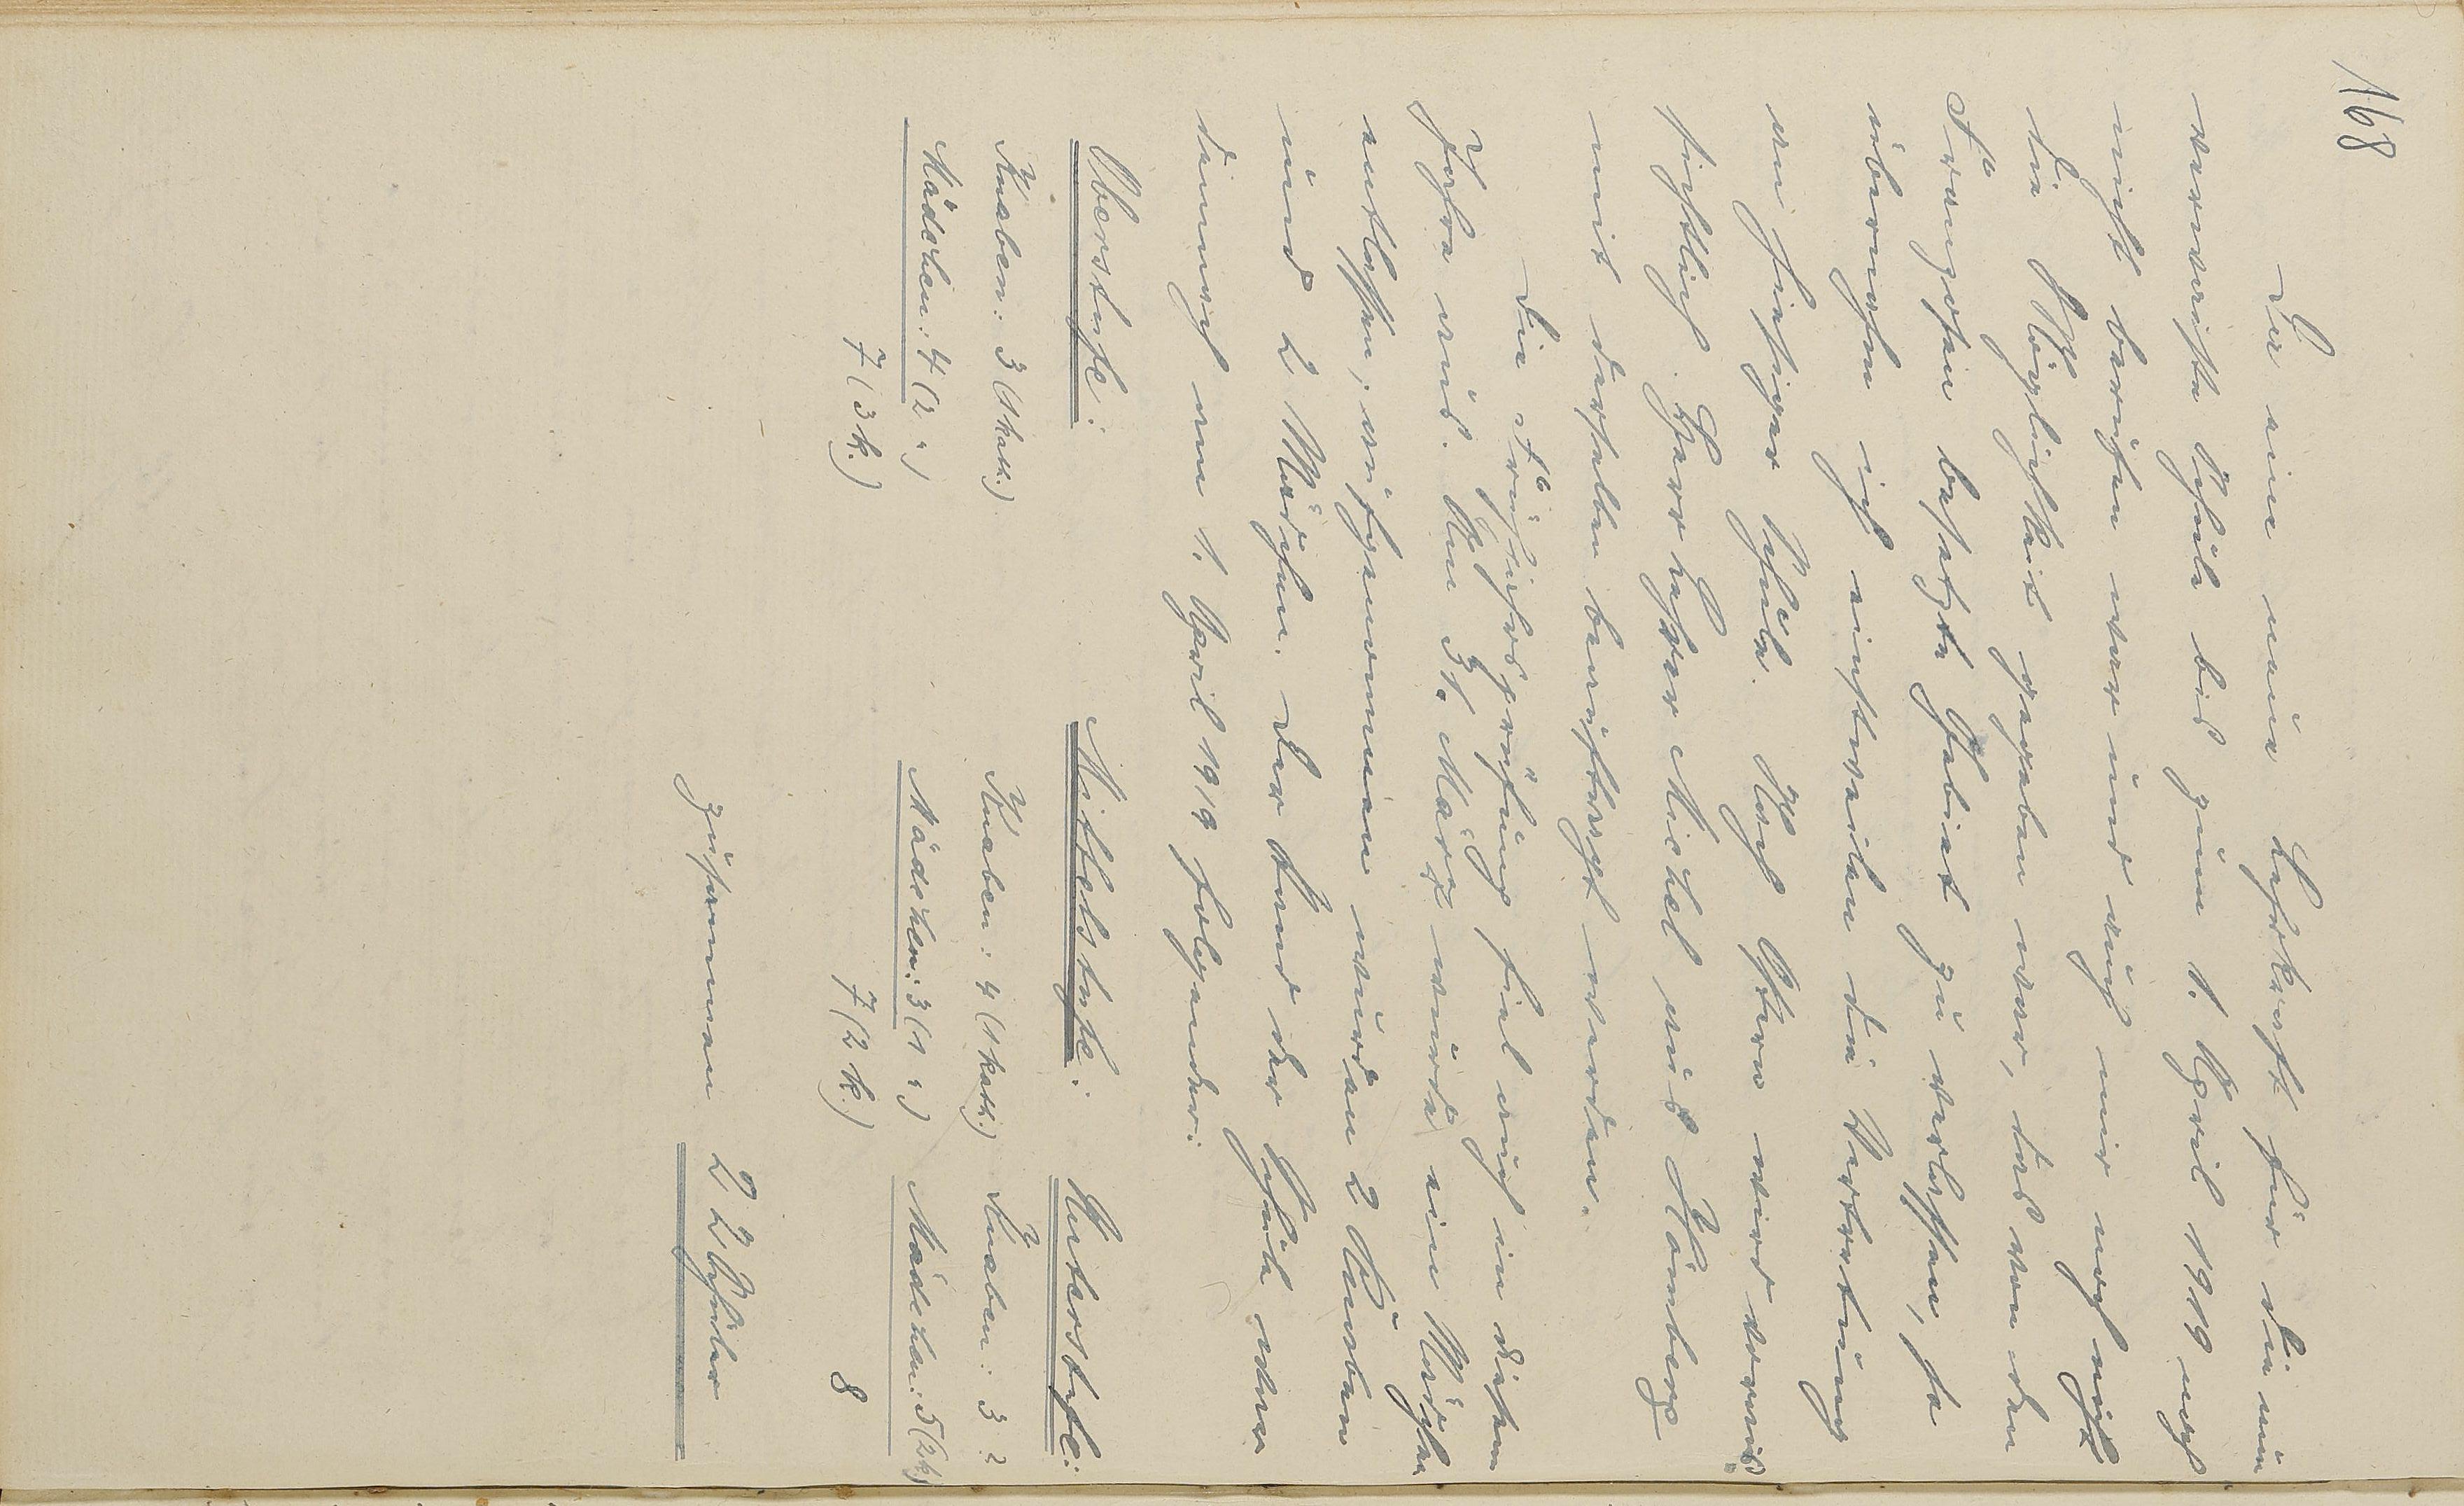 168
Da eine neue Lehrkraft für die nun
verwaiste Schule bis zum 1. April 1919 noch
nicht berufen war und auch mir noch nicht
die Möglichkeit gegeben war, das von den
Franzosen besetzte Gebiet zu verlassen, so
übernahm ich einstweilen die Vertretung
an hiesiger Schule. Nach Ostern wird voraus-
sichtlich Herr Lehrer Michel aus Homberg
mit derselben beauftragt werden.
Die Frühjahrsprüfung fiel auch in diesem
Jahre aus. Am 31. März wurde ein Mädchen
entlassen; aufgenommen wurden 2 Knaben
und 2 Mädchen. Der Stand der Schule war
demnach am 1. April 1919 folgender:
Oberstufe: Mittelstufe: Unterstufe:
Knaben: 3 (1 kath.) Knaben: 4 (1 kath.) Knaben: 3
Mädchen: 4 (2 ") Mädchen: 3 (1 ") Mädchen: 5 (2 k)
7 (3 k.) 7 (2 k.) 8
zusammen 22 Schüler